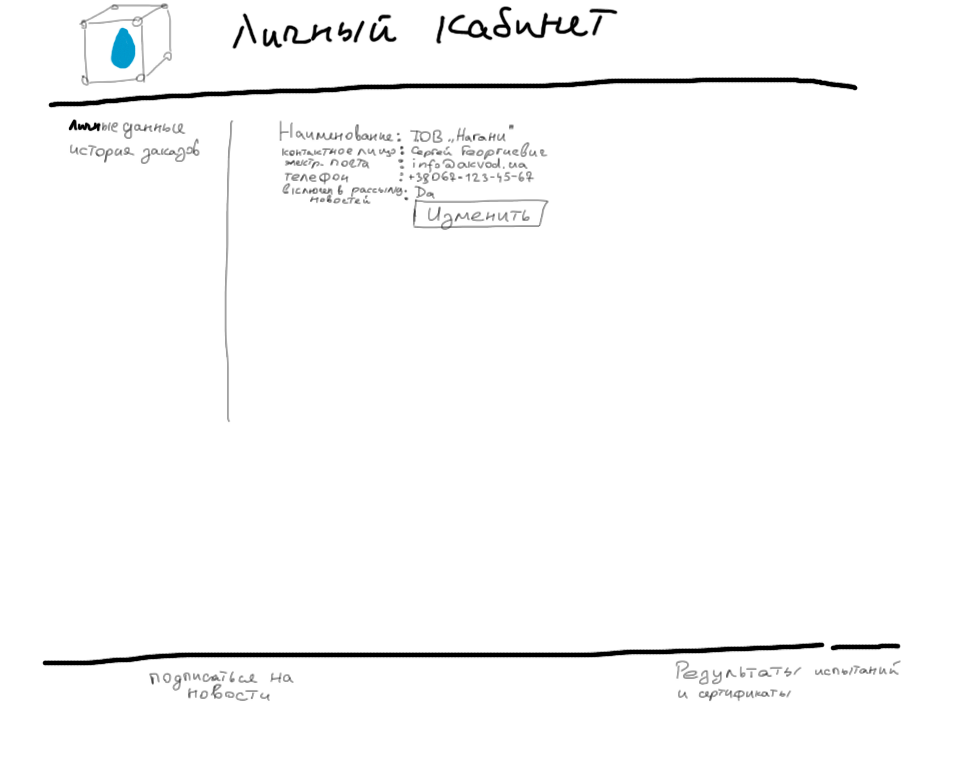 Личный кабинет
Личные данные
история заказов
Наименование: ТОВ „Нагани"
контактное лицо: Сергей Георгиевич
электр. почта : info@akvod.ua
телефон : +38067-123-45-67
включен в рассылку: Да
новостей
Изменить
подписаться на
новости
Результаты испытаний
и сертификаты